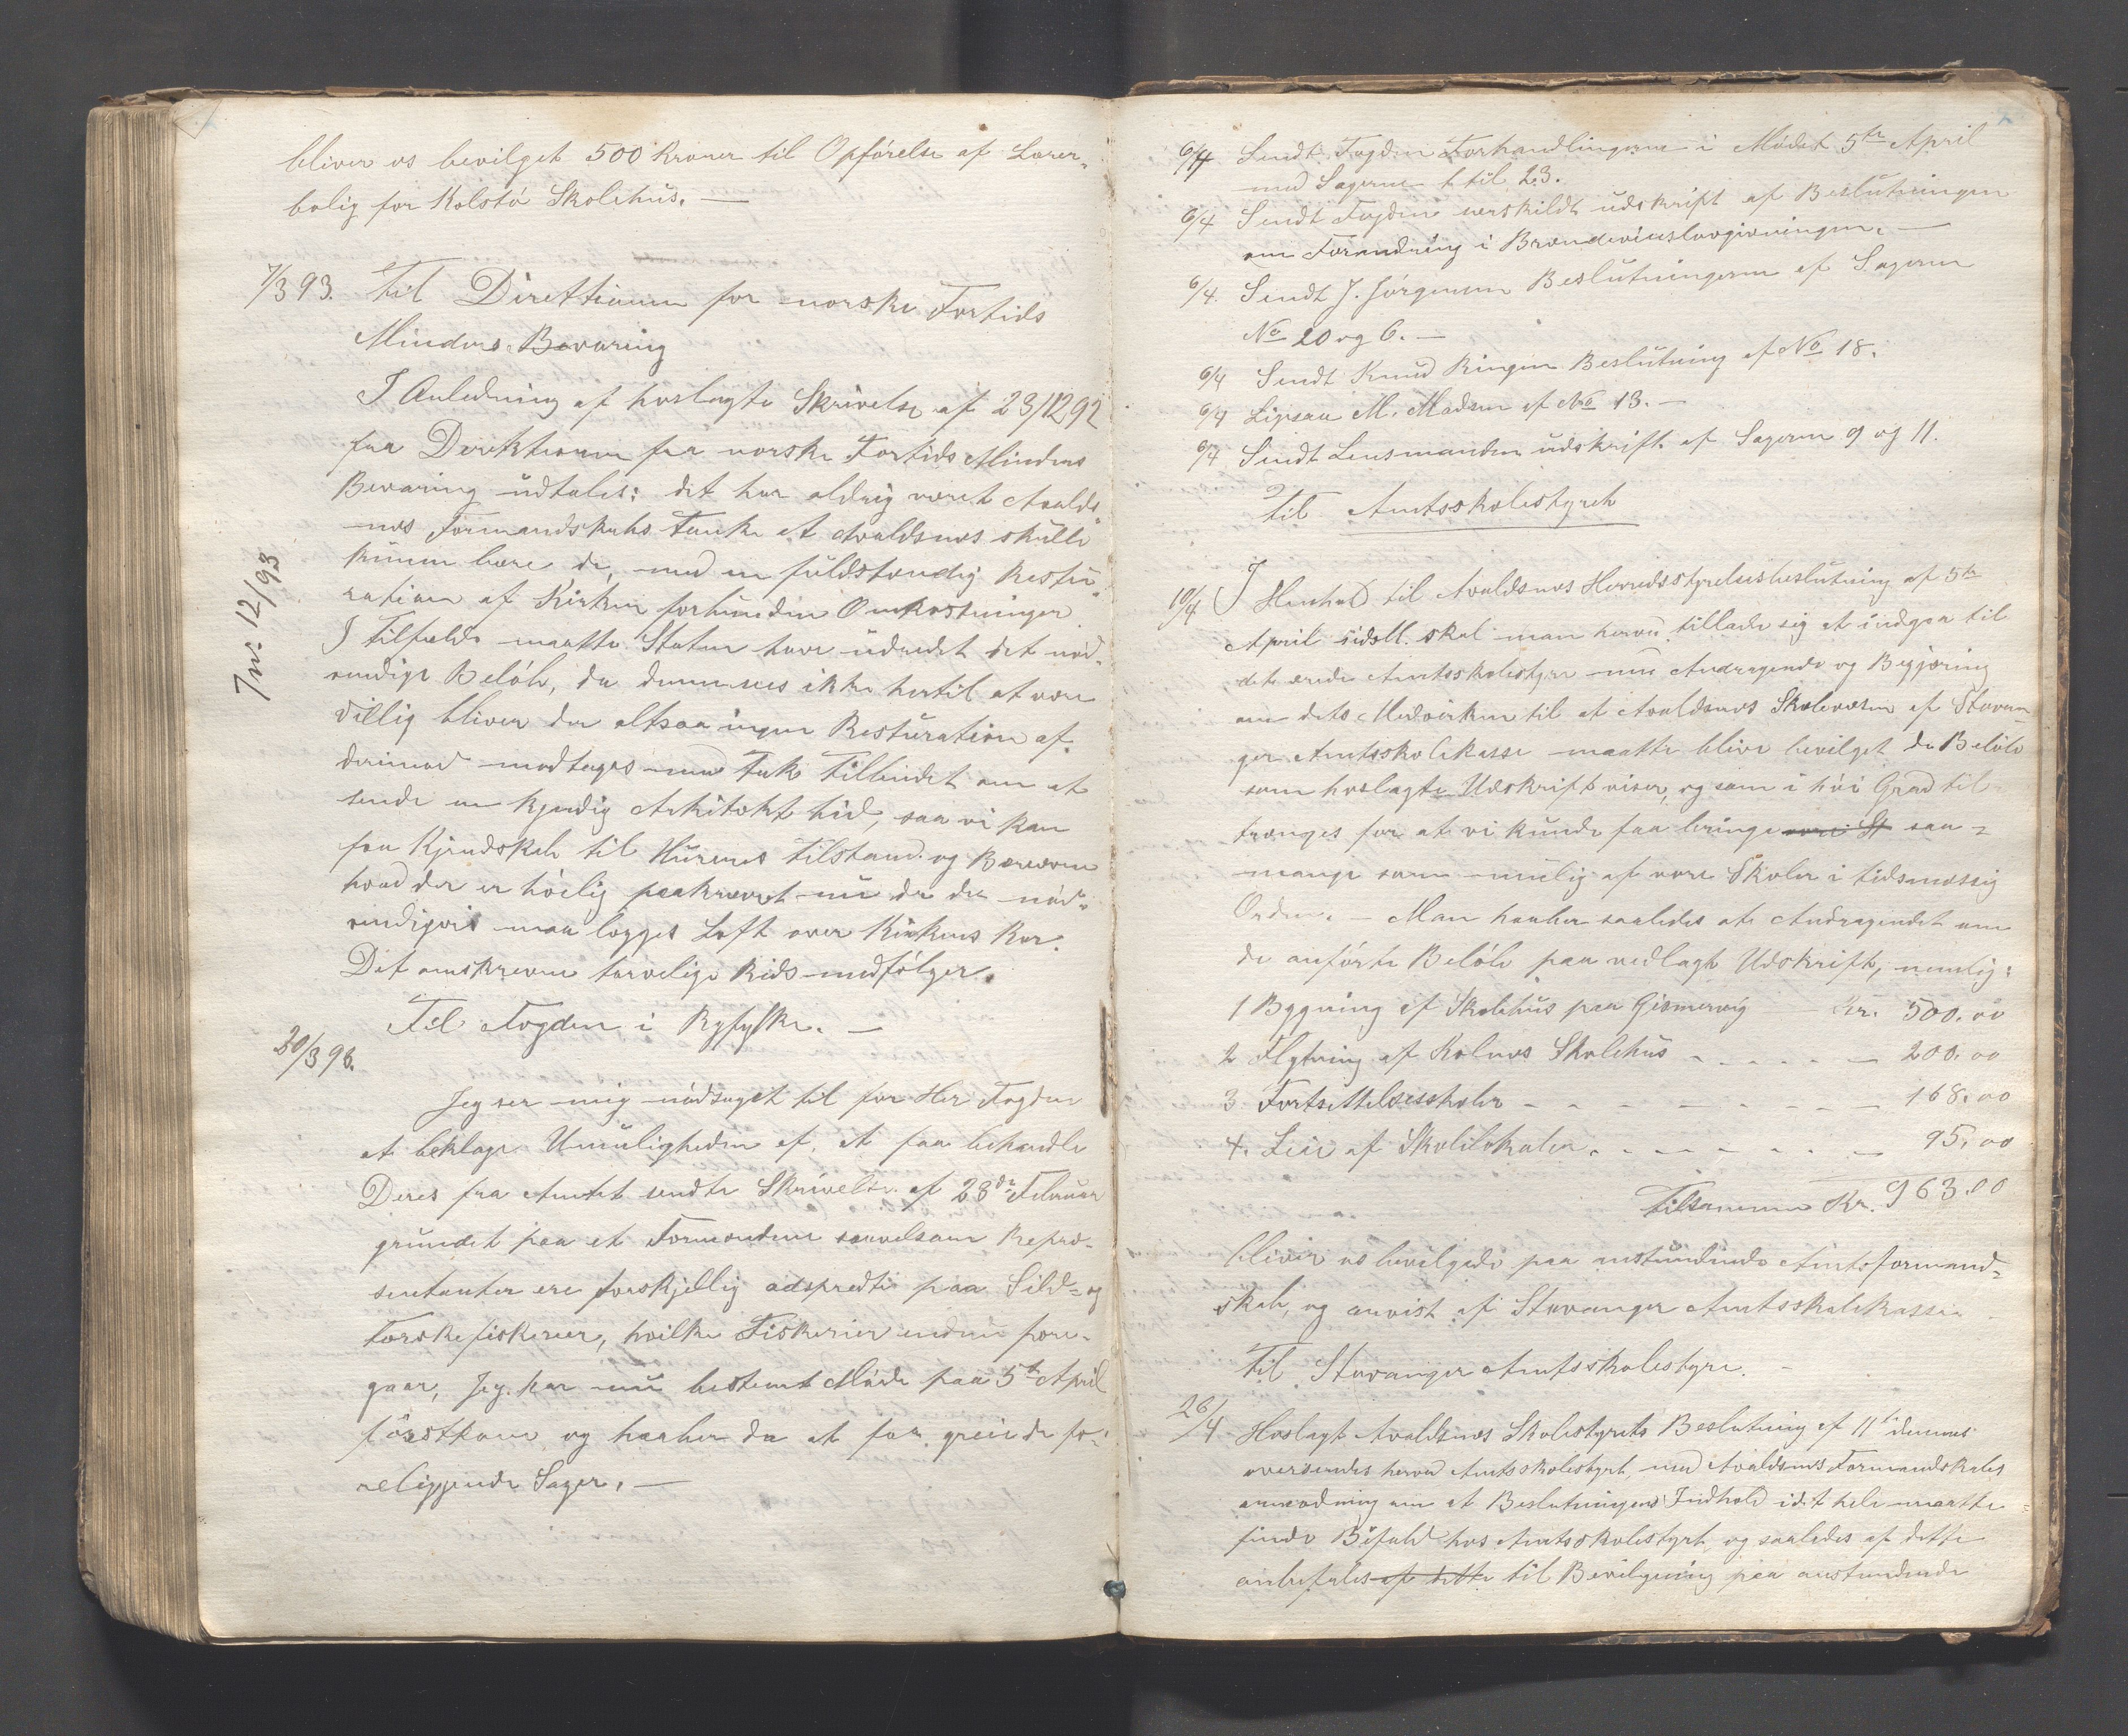 bliver os bevilget 500 Kroner til Opførelse af Lærer-
bolig for Kolstø Skolehus. —
7/3 93. Til Direktionen for norske Fortids
Minders Bevaring
I Anledning af hoslagte Skrivelse af 23/12 92
fra Direktionen for norske Fortids Minders
Bevaring udtales: det har aldrig været Avalds-
nes Formandskabs Tanke at Avaldsnes skulle
kunne bære de, med en fuldstændig Restu-
ration af Kirken forbundne Omkostninger.
I Tilfælde maatte Staten have udredet det nød-
vendige Beløb, da denne sees ikke hertil at være
villig bliver der altsaa ingen Restoration af.
derimod modtages med Tak Tilbudet om at
sende en kyndig Arkitekt hid, saa vi kan
faa Kjendskab til Murenes Tilstand og Bæreevne
hvad der er høelig paakrævet nu da der nød-
vendigvis maa lægges Loft over Kirkens Kor.
Det omskrevne tarvelige Rids medfølger.
Jn. 12/93
Til Fogden i Ryfylke. —
20/3 93.
Jeg ser mig nødsaget til for Her Fogden
at beklage Umuligheden af, at faa behandle
Deres fra Amtet sendte Skrivelse af 28de Februar
grundet paa at Formændene saavelsom Repræ-
sentanter ere forskjellig adspredte paa Sild- og
Torskefiskerier, hvilke Fiskerier endnu fore-
gaar, Jeg har nu bestemt Møde paa 5te April
førstkom og haaber da at faa greie de fo-
religgende Sager. —
6/4 Sendt Fogden Forhandlingerne i Mødet 5te April
med Sagerne 1 til 23.
6/4 Sendt Fogden særskildt udskrift af Beslutningen
om Forandring i Brændevinslovgivningen. —
6/4. Sendt J. Jørgensen Beslutningerne af Sagerne
No 20 og 6. —
6/4 Sendt Knud Ringen Beslutning af No 18.
6/4 Ligesaa M. Madsen af No 13. —
6/4 Sendt Lensmanden udskrift af Sagerne 9 og 11.
Til Amtsskolestyret
10/4 I Henhold til Avaldsnes Herredsstyrelsesbeslutning af 5te
April sidstl. skal man herved tillade sig at indgaa til
det ærede Amtsskolestyre med Andragende og Begjæring
om dets Medvirken til at Avaldsnes Skolevæsen af Stavan-
ger Amtsskolekasse maatte blive bevilget de Beløb
som hoslagte Udskrift viser, og som i høi Grad til-
trænges for at vi kunde faa bringe saa-
mange som mulig af vore Skoler i tidsmæssig
Orden. — Man haaber saaledes at Andragendet om
de anførte Beløb paa vedlagt Udskrift, nemlig:
1 Bygning af Skolehus paa Gismervig — Kr. 500.00
2 Flytning af Kolnes Skolehus - - - - - 200.00
3 Fortsettelsesskoler - - - - - - - - 168.00
4. Leie af Skolelokaler. - - - - - - 95.00
Tilsammen Kr. 963.00
bliver os bevilgede paa anstundende Amtsformand-
skab, og anvist af Stavanger Amtsskolekasse.
Til Stavanger Amtsskolestyre. —
26/4 Hoslagt Avaldsnes Skolestyrets Beslutning af 11te dennes
oversendes herved Amtsskolestyret, med Avaldsnes Formandskabs
anmodning om at Beslutningens Indhold i det hele maatte
finde Bifald hos Amtsskolestyret, og saaledes af dette
anbefales af dette til Bevilgning paa anstundende